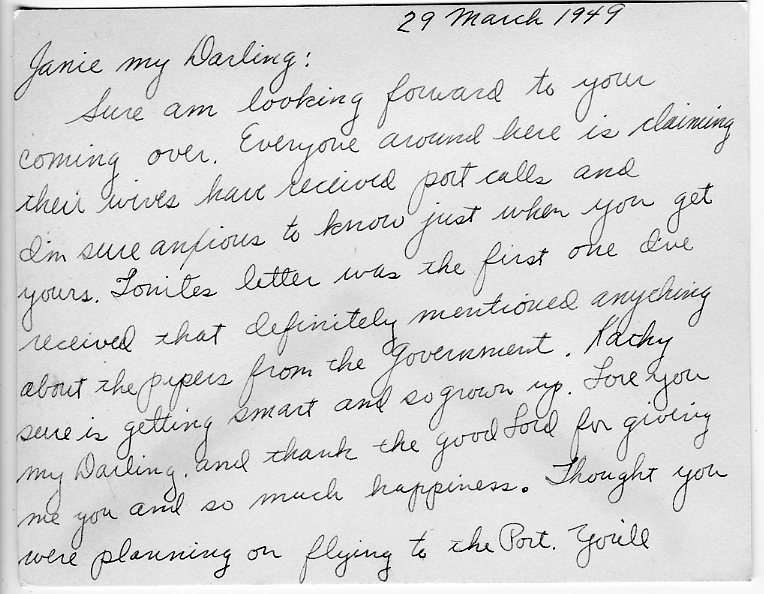 29 March 1949
Janie my Darling:
Sure am looking forward to your
coming over. Everyone around here is claiming
their wives have received port calls and
I'm sure anxious to know just when you get
yours. Tonites letter was the first one I've
received that definitely mentioned anything
about the pipers from the Government. Kathy
sure is getting smart and so grown up. Love you
my Darling, and thank the good Lord for giving
me you and so much happiness. Thought you
were planning on flying to the Port. You'll